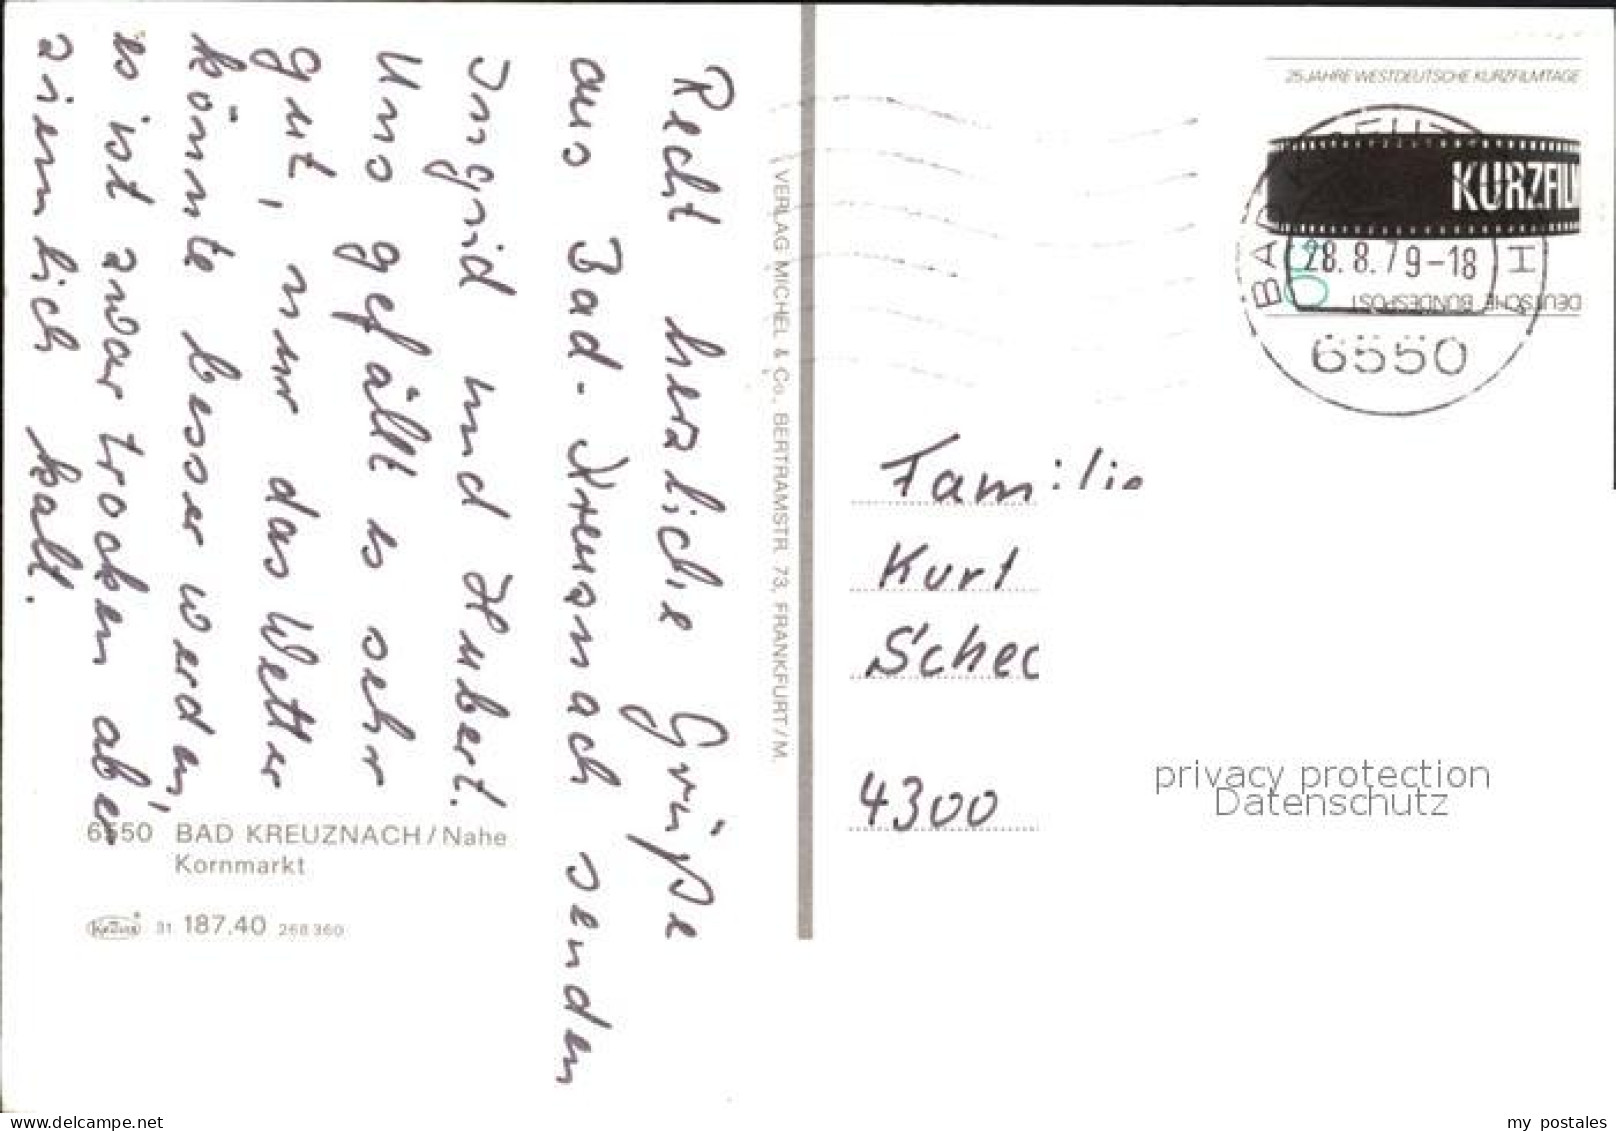 Recht herzliche Grüße
aus Bad-Kreuznach senden
Ingrid und Hubert.
Uns gefällt es sehr
gut, nur das Wetter
könnte besser werden,
es ist zwar trocken aber
ziemlich kalt.
6550 BAD KREUZNACH/Nahe
Kornmarkt
31 187.40 268 360
VERLAG MICHEL & Co., BERTRAMSTR. 73, FRANKFURT/M.
25 JAHRE WESTDEUTSCHE KURZFILMTAGE
KURZFILM
28.8.79-18
DEUTSCHE BUNDESPOST
6550
Familie
Kurt
Schec
4300
privacy protection
Datenschutz
www.delcampe.net
my_postales